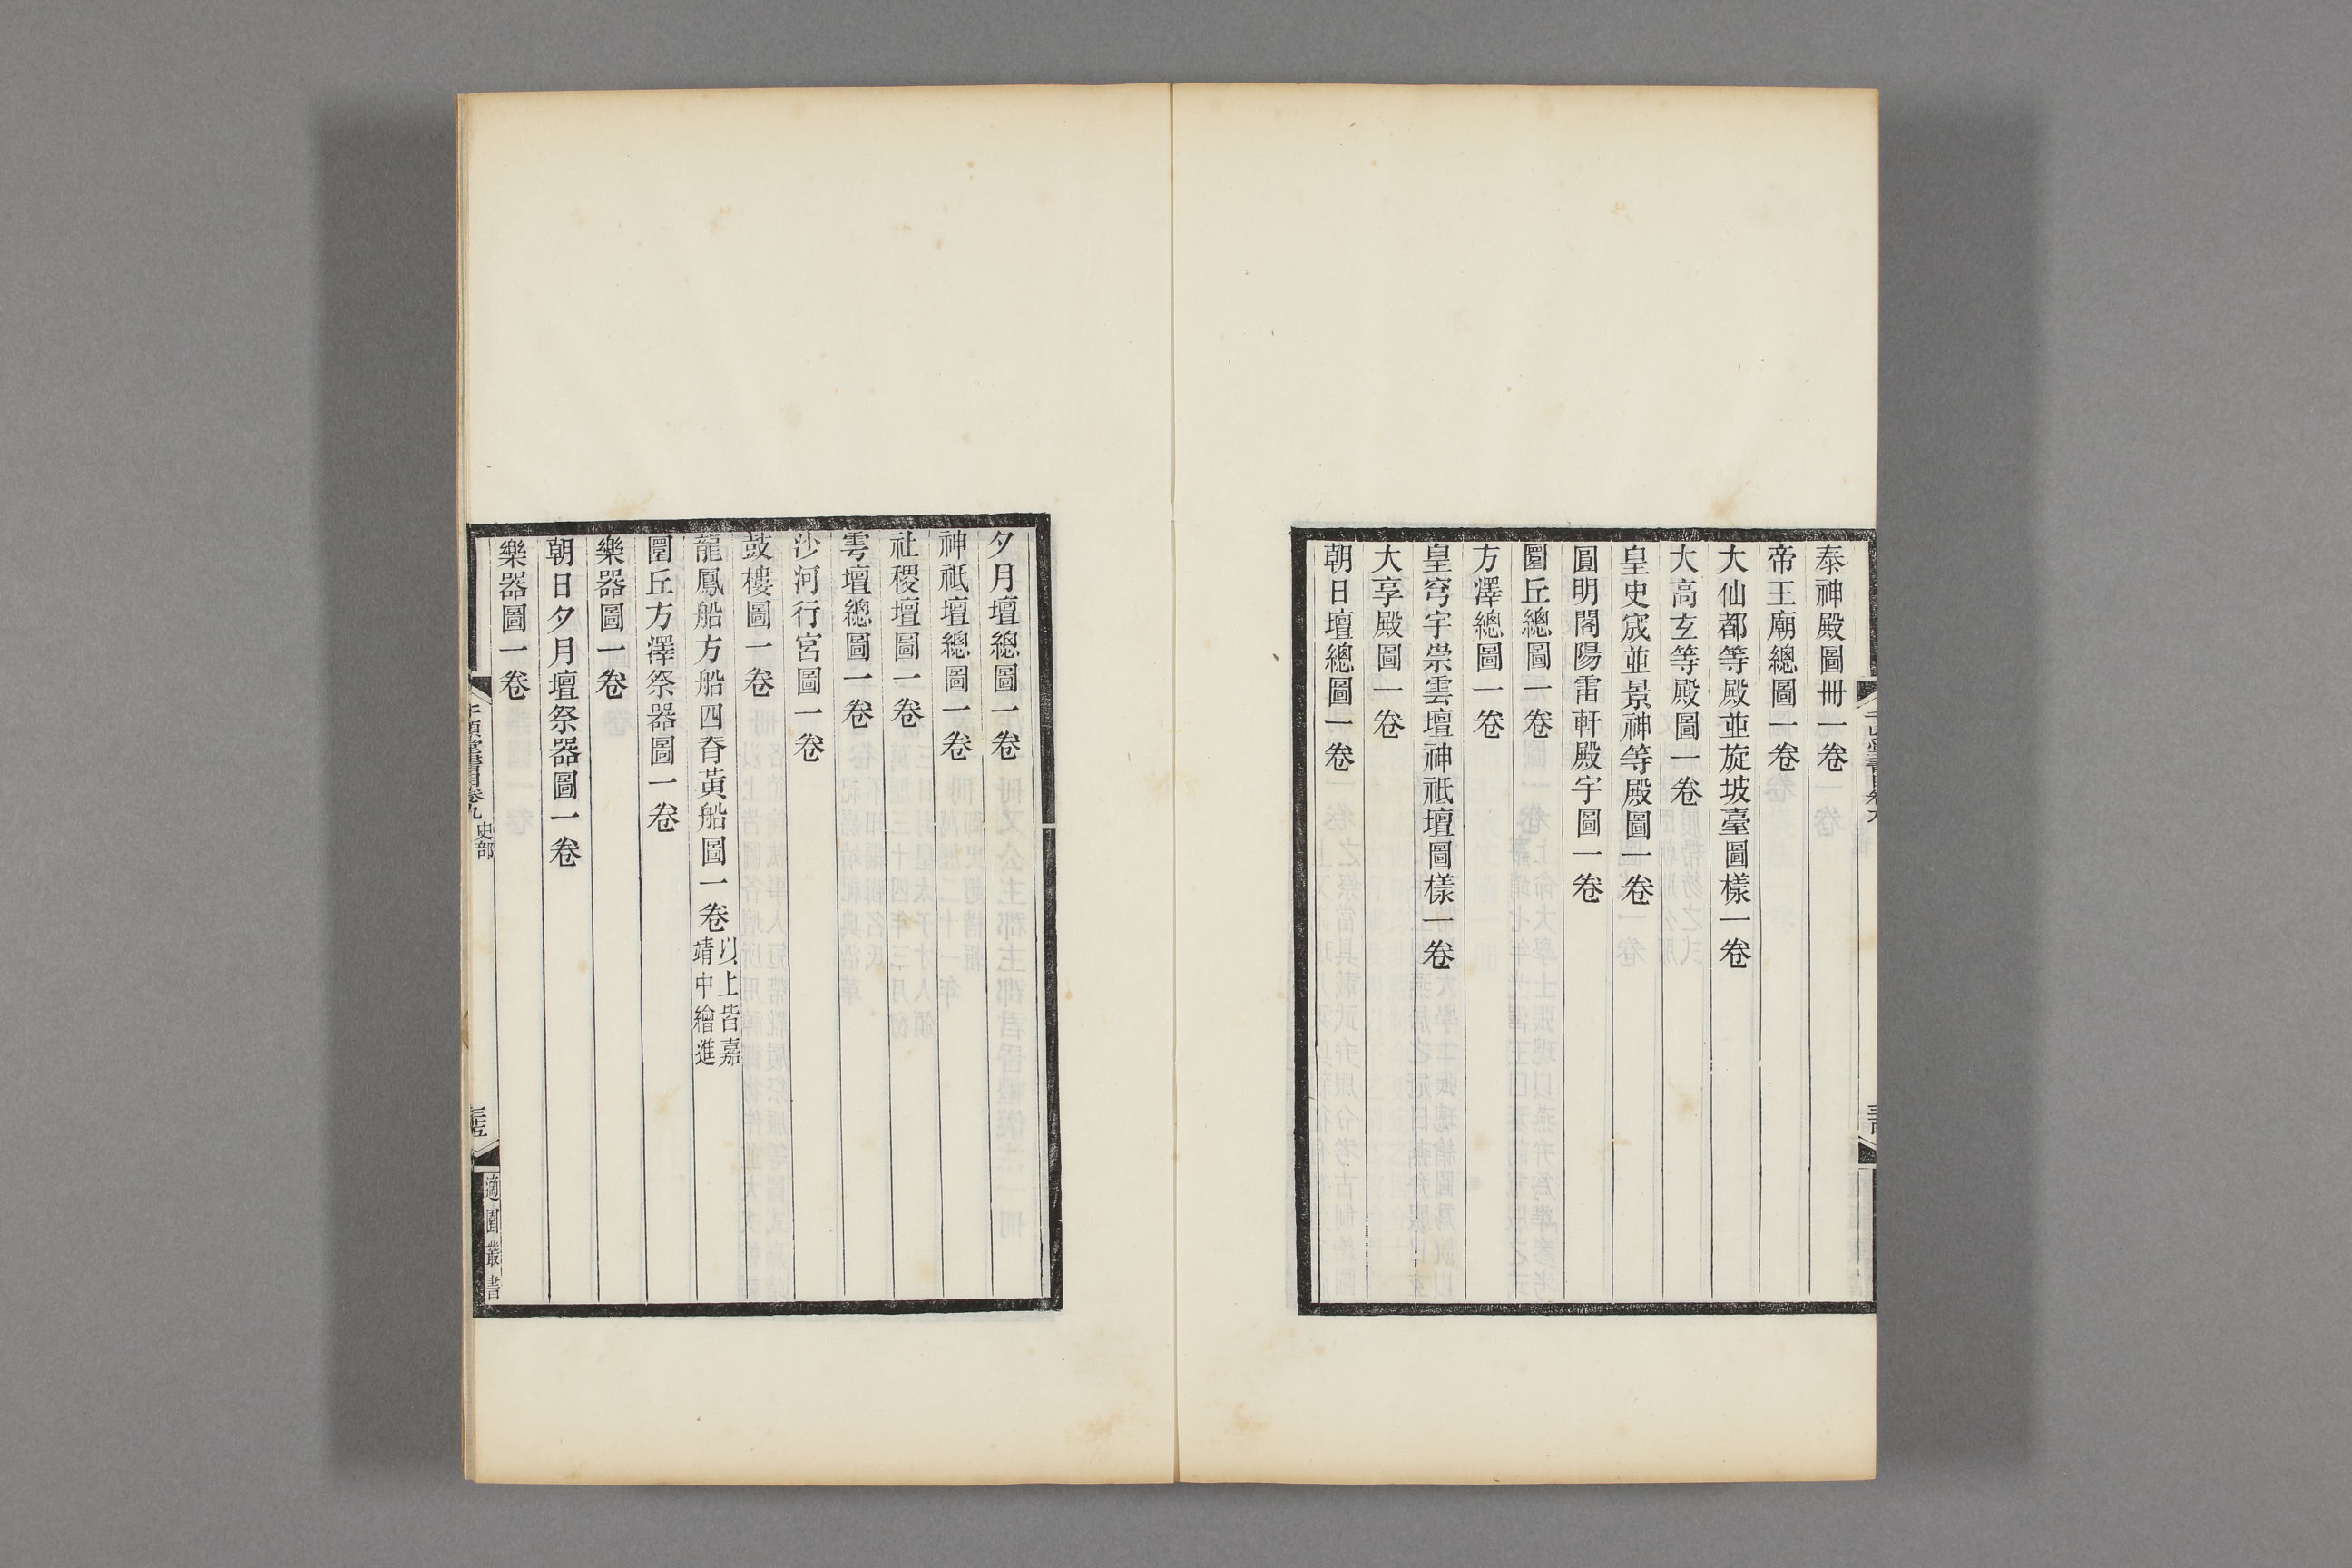 泰神殿圖冊一卷
帝王廟總圖一卷
大仙都等殿並旋坡臺圖樣一卷
大高玄等殿圖一卷
皇史宬並景神等殿圖一卷
圓明閣陽雷軒殿宇圖一卷
圜丘總圖一卷
方澤總圖一卷
皇穹宇崇雲壇神祇壇圖樣一卷
大享殿圖一卷
朝日壇總圖一卷
夕月壇總圖一卷
神祇壇總圖一卷
社稷壇圖一卷
雩壇總圖一卷
沙河行宮圖一卷
鼓樓圖一卷
龍鳳船方船四脊黃船圖一卷以上皆嘉
靖中繪進
圜丘方澤祭器圖一卷
樂器圖一卷
朝日夕月壇祭器圖一卷
樂器圖一卷
千頃堂書目卷九 史部
三十五
適園叢書